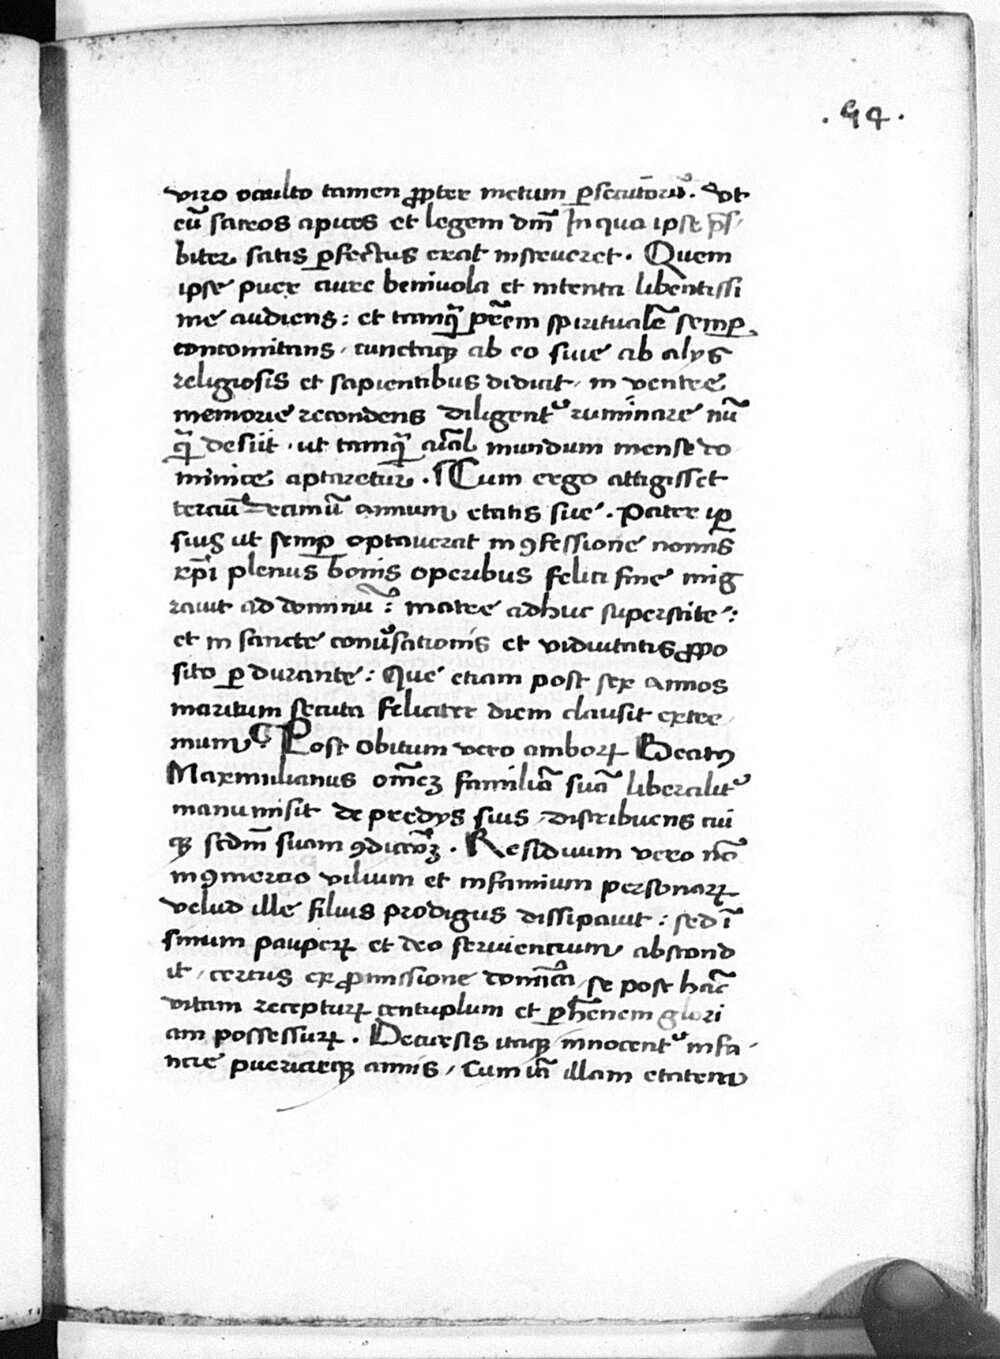 . 94 .
viro oculto tamen ꝓpter metum ꝑsecutorū. Vt
eū sacros apices et legem dm̄ In qua ipse p̄s/
biter satis ꝑfectus erat instrueret. Quem
ipse puer aure benivola et intenta libentissi
me audiens: et tamq̄ pr̄em spiritualē semꝑ
concomitans / cunctaqꝫ ab eo sive ab alijs
religiosis et sapientibus didicit / in ventre
memorie recondens diligentᵉ ruminare nū
q̄ desiit . ut tamq̄ aīal mundum mense do
minice aptaretur. Cum ergo attigisset
terciū decimū annum etatis sue. Pater iꝑ
siuꝰ ut semꝑ optaverat in ꝯfessione nominis
xp̄i plenus bonis operibus felici fine mig
ravit ad dominū: matre adhuc superstite:
et in sancte conūsationis et viduitatis ꝓpo
sito ꝑdurante: Que etiam post sex annos
maritum secuta feliciter diem clausit extre/
mum. Post obitum vero amborꝝ Beatꝰ
Maxmilianus om̄eꝫ familiā suā liberalitᵉ
manumisit de predijs suis / distribuens cui
qꝫ sedm̄ suam ꝯdicōeꝫ. Residuum vero nō
in ꝯmercio vilium et infamium personarꝝ
velud ille filius prodigus dissipavit: sed ī
sinum pauperꝝ et deo servientium abscond
it / certus ex ꝓmissione domīca / se post hāc
vitam recepturꝝ centuplum et ꝑhēnem glori
am possessurꝝ. Decursis itaqꝫ innocentᵉ infa/
ncie puericieqꝫ annis / Cum iā illam etatem